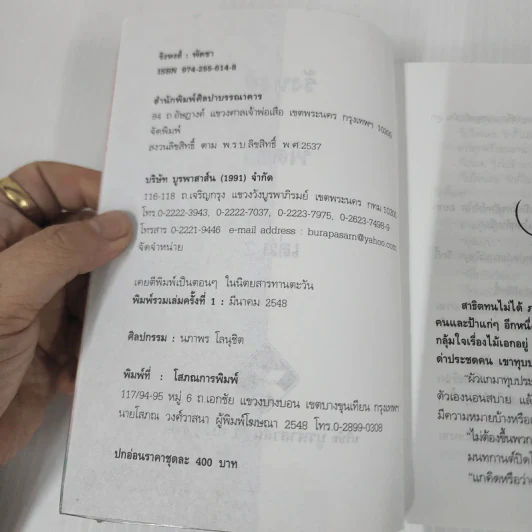 รังหงส์ : พัดชา
ISBN 974-255-614-8
สำนักพิมพ์ศิลปาบรรณาคาร
84 ถ.อัษฎางค์ แขวงศาลเจ้าพ่อเสือ เขตพระนคร กรุงเทพฯ 10200
จัดพิมพ์
สงวนลิขสิทธิ์ ตาม พ.ร.บ.ลิขสิทธิ์ พ.ศ.2537
บริษัท บูรพาสาส์น (1991) จำกัด
116-118 ถ.เจริญกรุง แขวงวังบูรพาภิรมย์ เขตพระนคร กทม.10200
โทร.0-2222-3943, 0-2222-7037, 0-2223-7975, 0-2623-7498-9
โทรสาร 0-2221-9446 e-mail address : burapasarn@yahoo.com
จัดจำหน่าย
เคยตีพิมพ์เป็นตอนๆ ในนิตยสารทานตะวัน
พิมพ์รวมเล่มครั้งที่ 1 : มีนาคม 2548
ศิลปกรรม : นภาพร โลนุชิต
พิมพ์ที่ : โสภณการพิมพ์
117/94-95 หมู่ 6 ถ.เอกชัย แขวงบางบอน เขตบางขุนเทียน กรุงเทพฯ
นายโสภณ วงศ์วาสนา ผู้พิมพ์โฆษณา 2548 โทร.0-2899-0308
ปกอ่อนราคาชุดละ 400 บาท
สาธิตทนไม่ได้
คนและป้าแก่ๆ อีกหนึ่
กลุ้มใจเรื่องไม้เอกอยู่
ด่าประชดคน เขาทุบป
"ผัวแกมาทุบประ
ตัวเองนอนสบาย แล้
มีความหมายบ้างหรือเ
"ไม่ต้องขึ้นพวก
มนทกานต์ปิดโ
"แกคิดหรือว่า